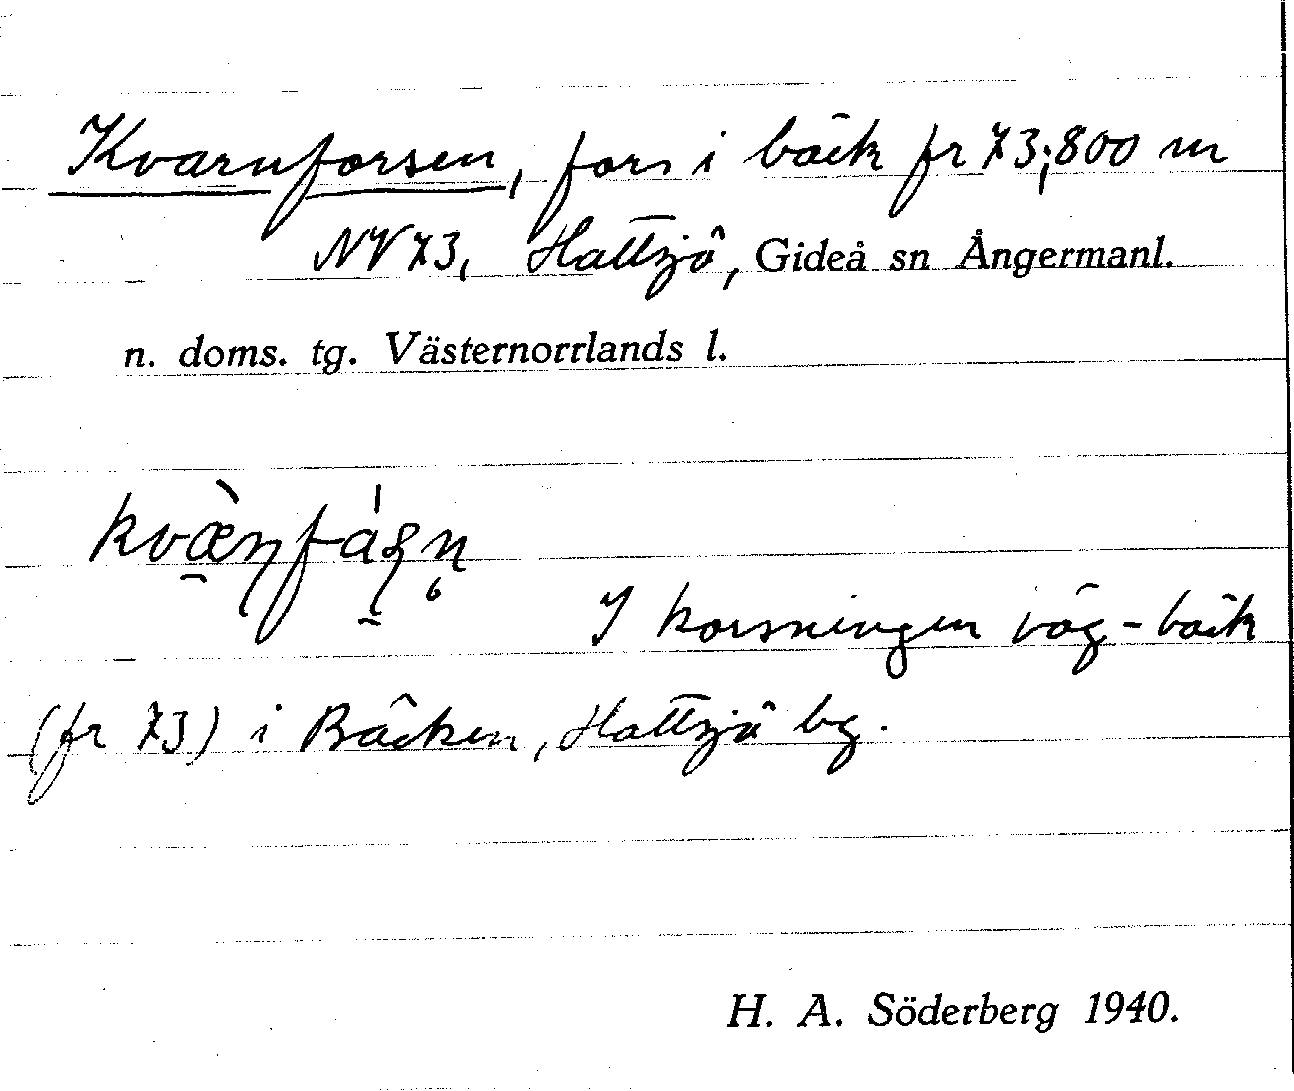 Kvarnforsen, fors i bäck fr 73; 800 m
NV 73, Hattsjö, Gideå sn Ångermanl.
n. doms. tg. Västernorrlands l.
I korsningen väg - bäck
(fr 73) i Bäcken, Hattsjö by.
H. A. Söderberg 1940.